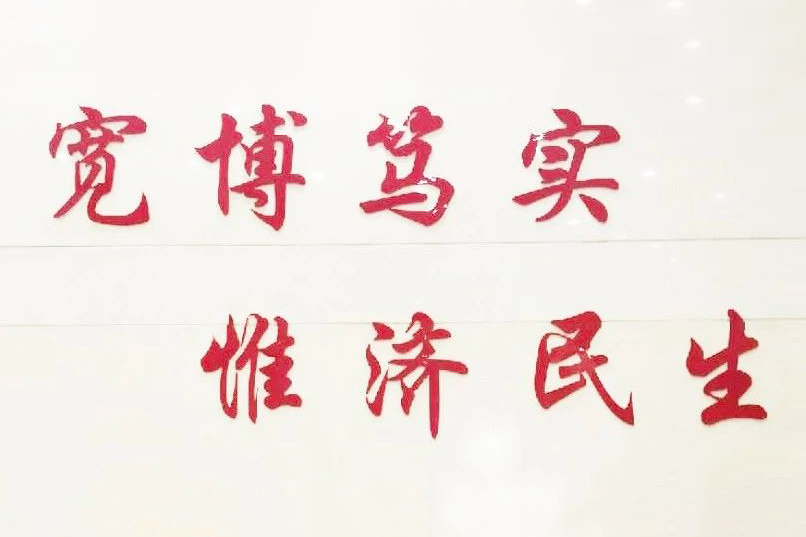 宽博笃实
惟济民生